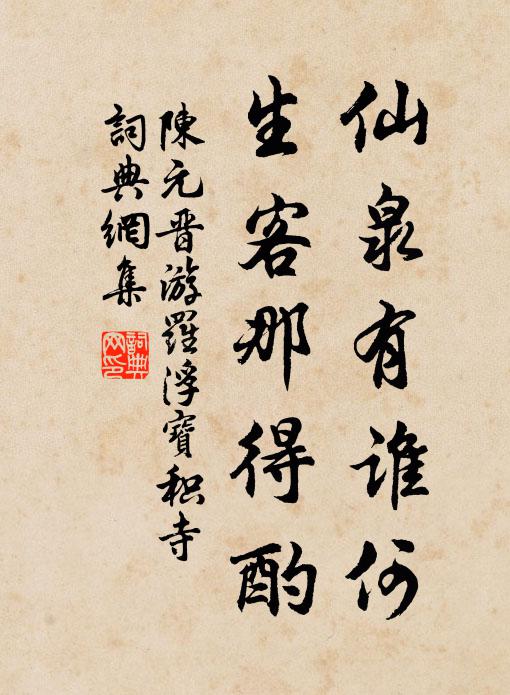 仙泉有谁何
生客那得酌
陳元晋游羅浮寶积寺
詞典網集
詞典網印